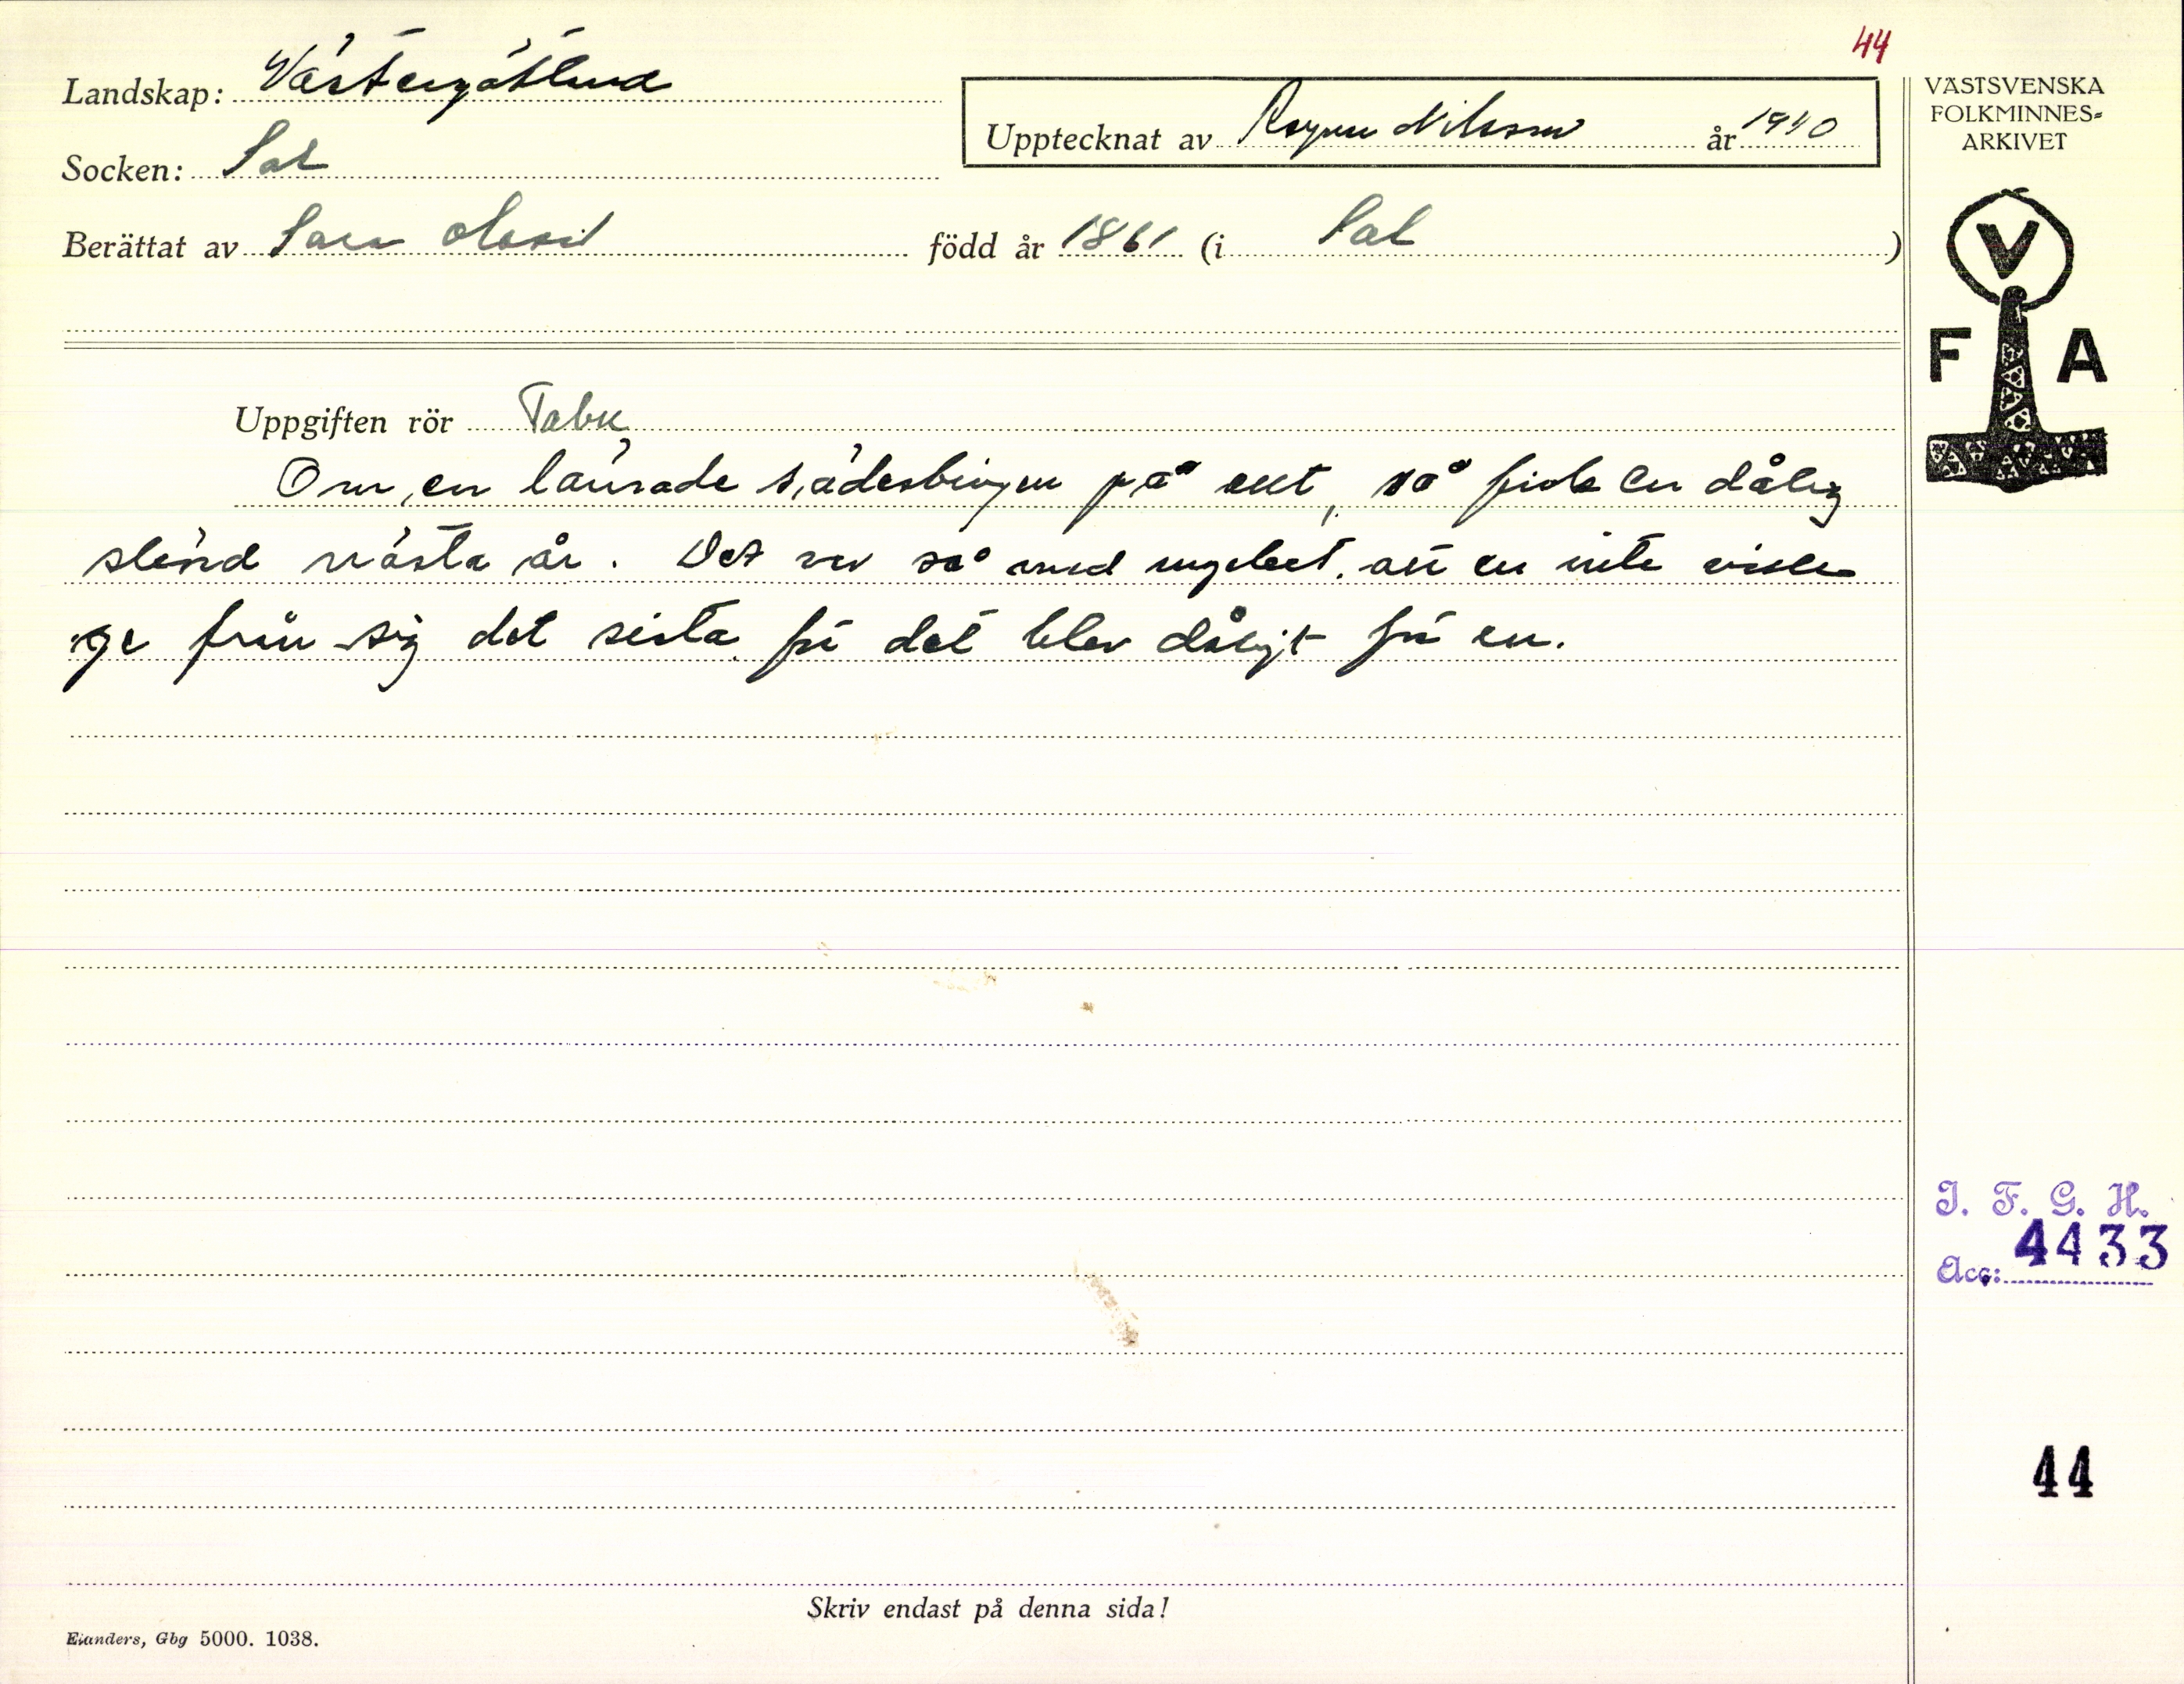 44
Landskap: Västergötland
VÄSTSVENSKA
FOLKMINNES-
ARKIVET
Upptecknat av Ragnar Nilsson år 1940
Socken: Sal
Berättat av Sara född år 1861 (i Sal )
V
F A
Uppgiften rör Tabu
Om en länsade sädesbingen på allt, så fick en dålig
skörd nästa år. Det var så med mycket, att en inte ville
ge från sig det sista för det blev dåligt för en.
I. F. G. H.
Acc: 4433
44
Skriv endast på denna sida!
Elanders, Gbg 5000. 1038.